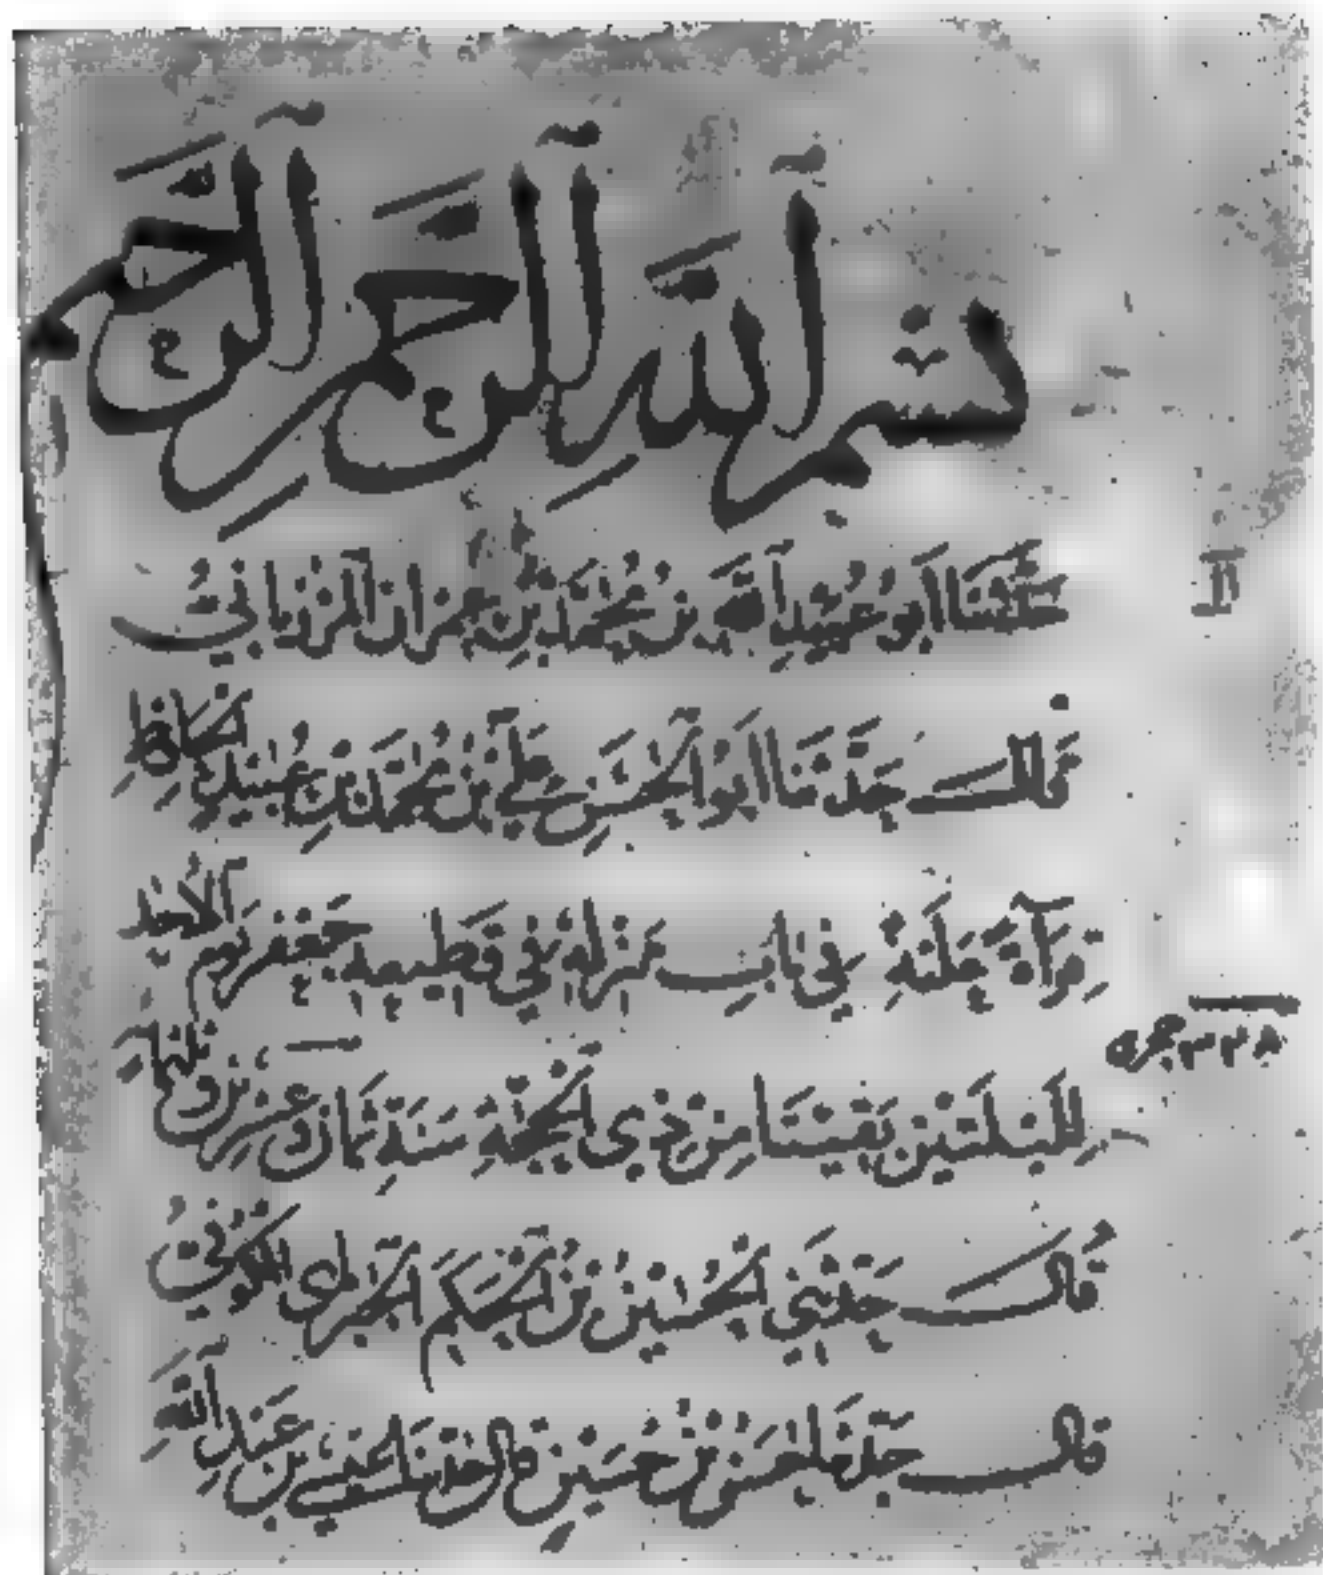 بِسْمِ ٱللَّهِ ٱلرَّحْمَٰنِ ٱلرَّحِيمِ
حَدَّثَنَا أَبُو عُبَيْدِ ٱللَّهِ بْنُ مُحَمَّدِ بْنِ عِمْرَانَ ٱلْمَرْزُبَانِيُّ
قَالَ حَدَّثَنَا أَبُو ٱلْحَسَنِ عَلِيُّ بْنُ مُحَمَّدِ بْنِ عُبَيْدٍ ٱلْحَافِظُ
قِرَآءَةً عَلَيْهِ فِي بَابِ مَنْزِلِهِ فِي قَطِيعَةِ جَعْفَرٍ يَوْمَ ٱلْأَحَدِ
۳۲۸ هجری
لِلَيْلَتَيْنِ بَقِيَتَا مِنْ ذِي ٱلْحِجَّةِ سَنَةَ ثَمَانٍ وَعِشْرِينَ وَثَلٰثِمِائَةٍ
قَالَ حَدَّثَنِي ٱلْحُسَيْنُ بْنُ ٱلْحَكَمِ ٱلْحِبَرِيُّ ٱلْكُوفِيُّ
قَالَ حَدَّثَنَا حَسَنُ بْنُ حُسَيْنٍ قَالَ حَدَّثَنَا بْنُ عَبْدِ ٱللَّهِ